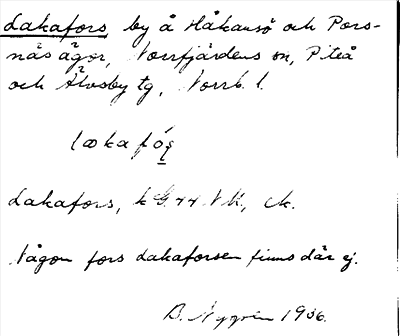 Lakafors by å Håkansö och Pors-
näs ägor, Norrfjärdens sn, Piteå
och Älvsby tg, Norrb. l.
Lakafors, k
Någon fors Lakaforsen finns där ej.
B. Nygren 1936.